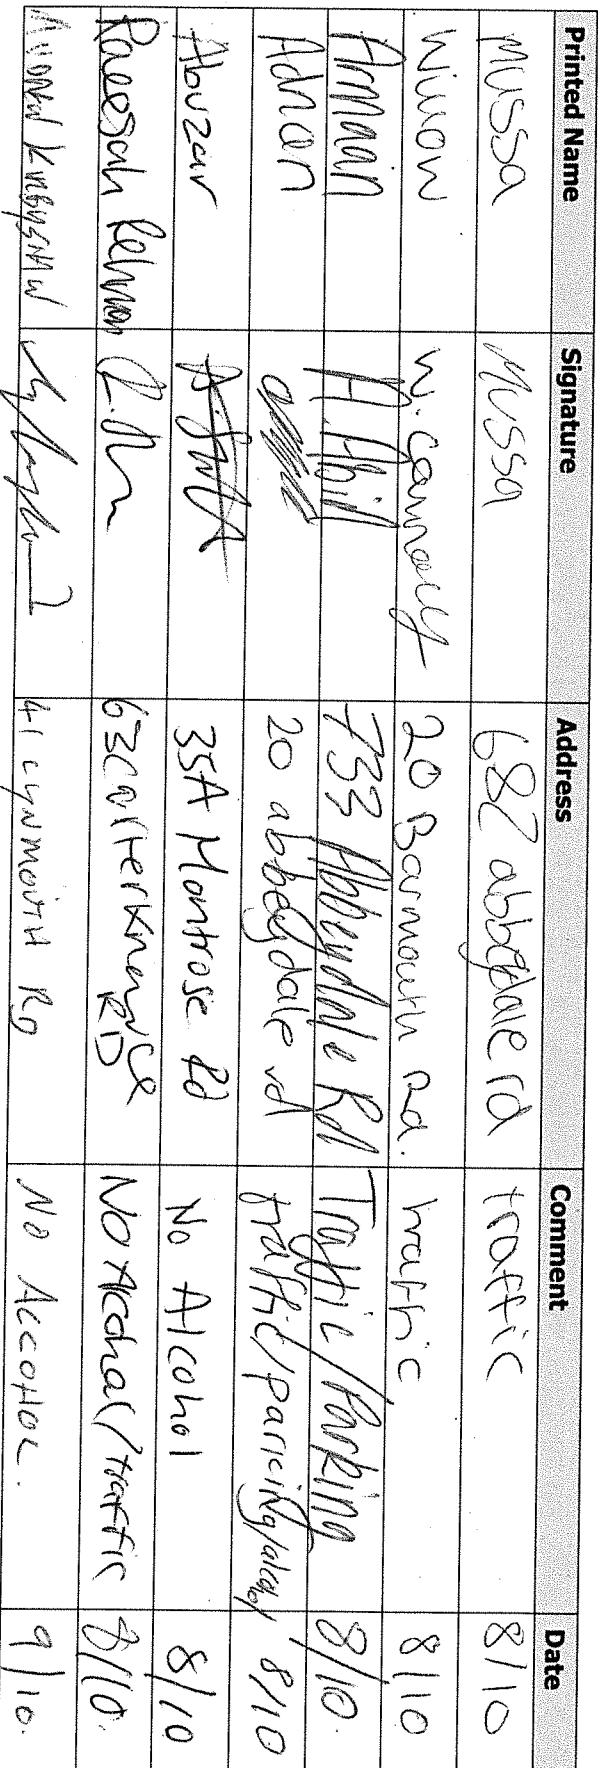 Printed Name Signature Address Comment Date
Mussa Mussa 682 abbeydale rd traffic 8/10
Willow W. Connolly 20 Barmouth Rd. traffic 8/10
Armaan A. Abid 733 Abbeydale Rd Traffic/Parking 8/10.
Adnan 20 abbeydale rd traffic/parking/alcohol 8/10
Abuzar 35A Montrose Rd No Alcohol 8/10
Raeesah Rehman R. 63 Carterknowle RD No Alcohol/traffic 8/10.
41 Lynmouth RD No Alcohol. 9/10.